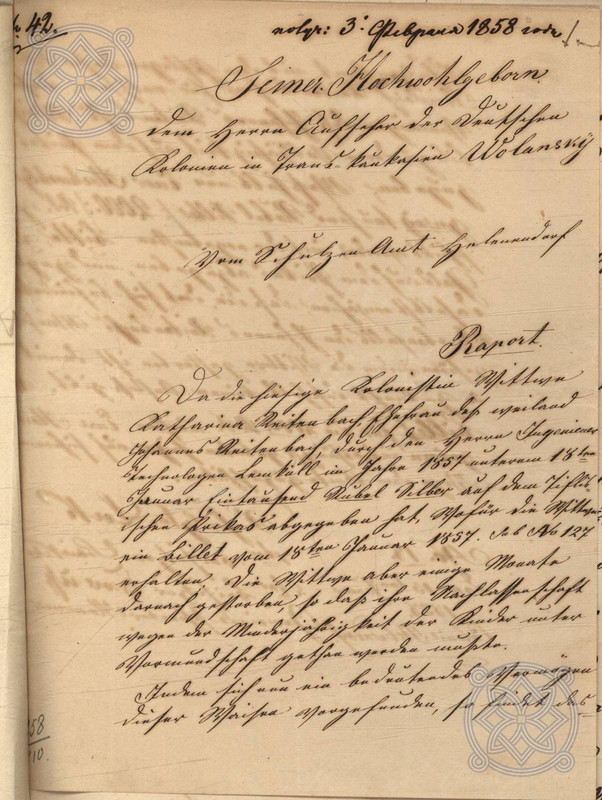 42.
получ: 3. Февраля 1858 года
Seiner Hochwohlgeborn
dem Herrn Aufseher der Deutschen
Kolonien in Trans-kaukasien Wolansky
Vom Schulzen Amt Helenendorf
Raport.
Da die hiesige Kolonistin Wittwe
Katharina Reitenbach, Ehefrau des weiland
Johannes Reitenbach, durch den Herrn Ingenieur
Technologen Lemkull im Jahre 1857 unterem 18ten
Januar Eintausend Rubel Silber auf dem Tiflis
ischen Prikas abgegeben hat, wofür die Wittwe
ein Billet vom 18ten Januar 1857. Sub No 127
erhalten. Die Wittwe aber einige Monate
darnach gestorben so daß ihre Nachlassenschaft
wegen der Minderjährigkeit der Kinder unter
Vormundschaft gethan werden mußte.
Indem sich nun ein bedeutendes Vermögen
dieser Waisen vorgefunden, so findet das
58
10.